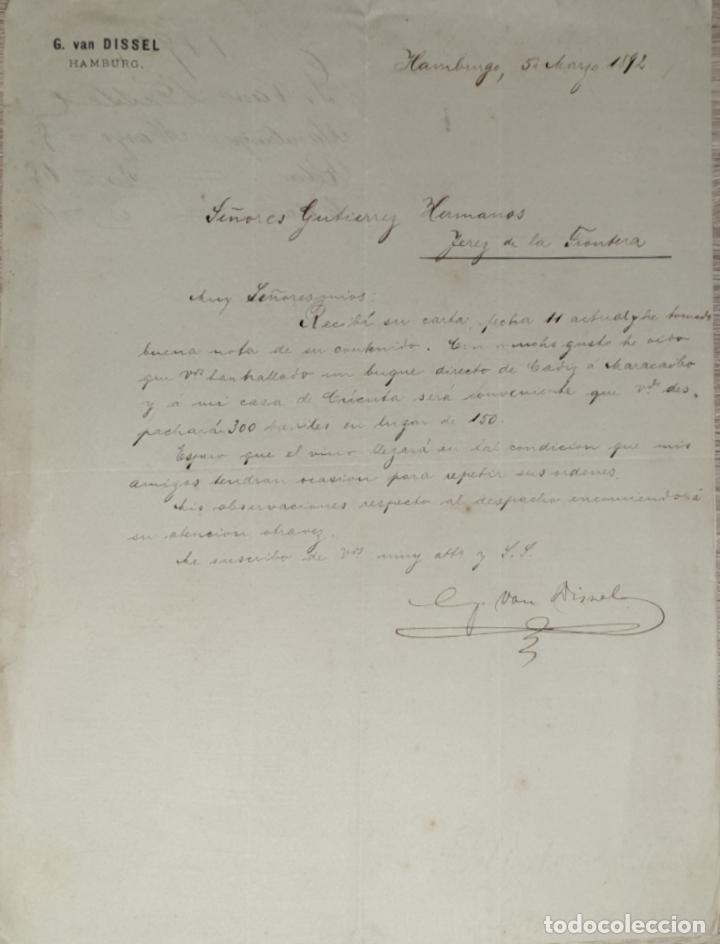 G. van DISSEL
HAMBURG.
Hamburgo, 5 Mayo 1892
Señores Gutierrez Hermanos
Jerez de la Frontera
Muy Señores mios:
Recibí su carta, fecha 11 actual y he tomado
buena nota de su contenido. Con mucho gusto he visto
que Vds han hallado un buque directo de Cadiz á Maracaibo
y á mi casa de Cúcuta será conveniente que Vds des-
pachará 300 barriles en lugar de 150.
Espero que el vino llegará en tal condicion que mis
amigos tendran ocasión para repetir sus ordenes.
Mis observaciones respecto al despacho encomiendo á
su atencion otra vez.
Me suscribo de Vds muy atto y S. S.
G. van Dissel
todocoleccion